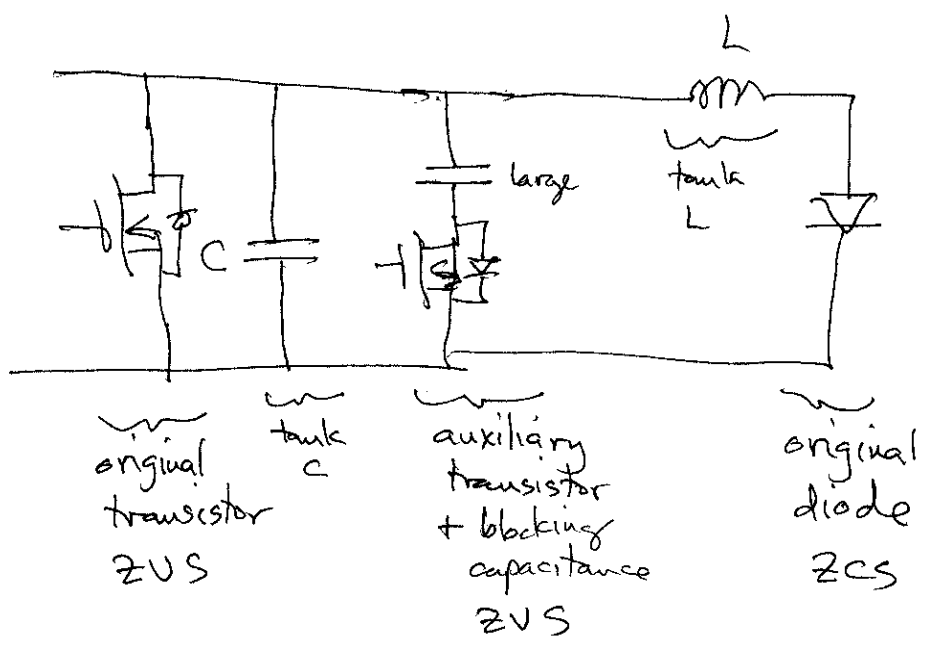 L
large
tank
L
C
original
transistor
ZVS
tank
C
auxiliary
transistor
+ blocking
capacitance
ZVS
original
diode
ZCS